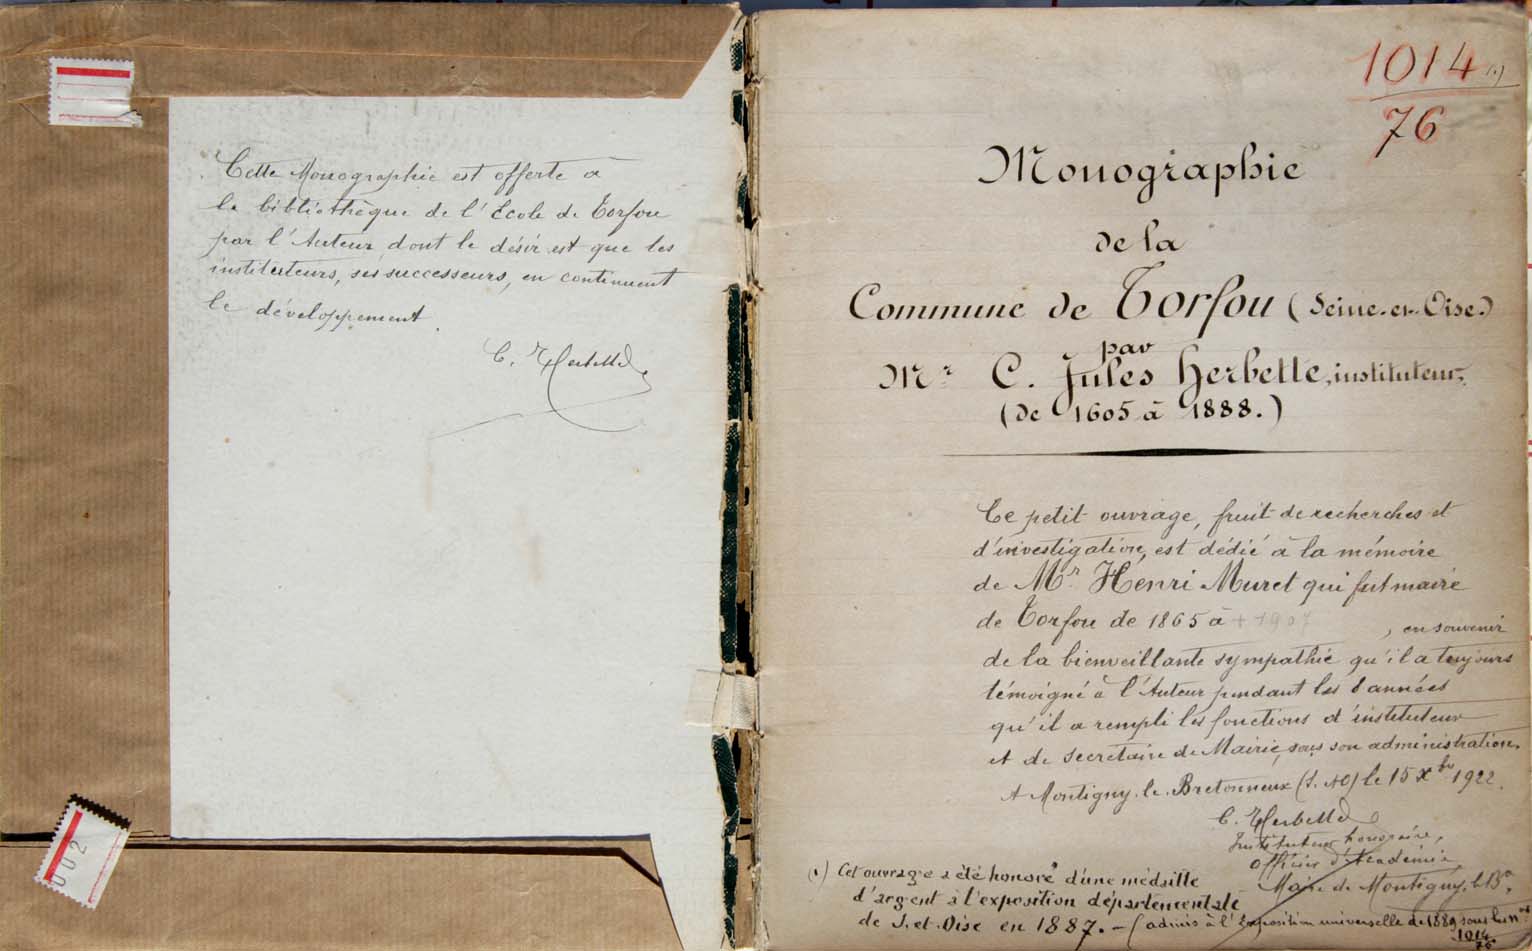 Cette Monographie est offerte à
la bibliothèque de l'Ecole de Torfou
par l'Auteur dont le désir est que les
instituteurs, ses successeurs, en continuent
le développement.
C. Herbette
002
1014 (1)
76
Monographie
de la
Commune de Torfou (Seine-et-Oise)
par
Mr C. Jules Herbette, instituteur,
(de 1605 à 1888.)
Ce petit ouvrage, fruit de recherches et
d'investigation, est dédié à la mémoire
de Mr Henri Muret qui fut maire
de Torfou de 1865 à + 1907, en souvenir
de la bienveillante sympathie qu'il a toujours
témoigné à l'Auteur pendant les 8 années
qu'il a rempli les fonctions d'instituteur
et de secrétaire de Mairie, sous son administration.
A Montigny-le-Bretonneux (S. &O) le 15 Xbre 1922.
C. Herbette
Instituteur honoraire,
Officier d'Académie
Maire de Montigny-le-Bx.
(1) Cet ouvrage a été honoré d'une médaille
d'argent à l'exposition départementale
de S. et-Oise en 1887. - (admis à l'Exposition universelle de 1889 sous les nos
1014
76